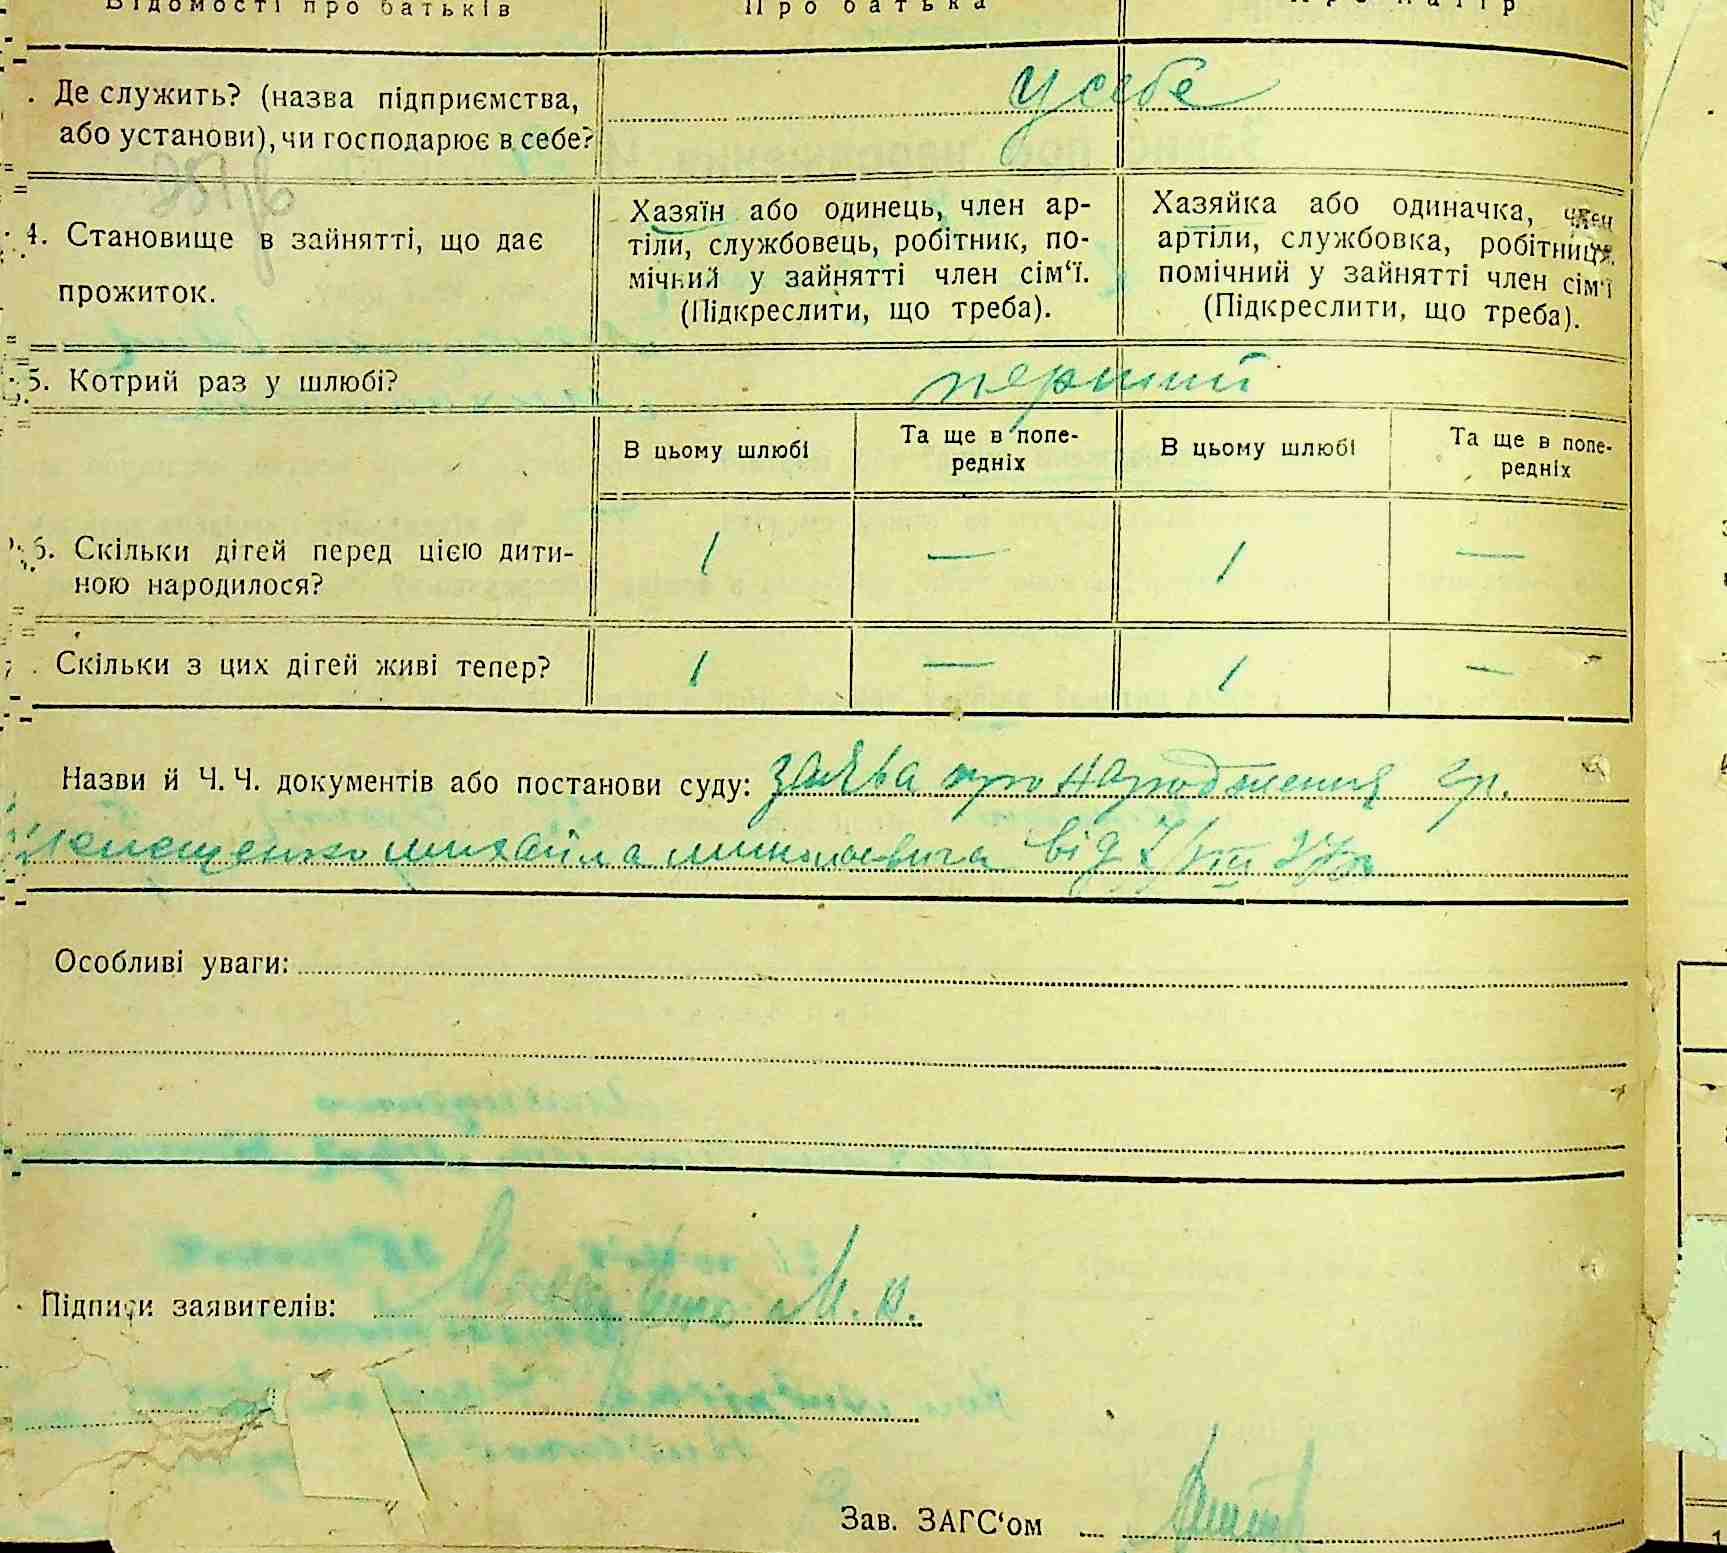 Відомості про батьків Про батька Про матір
Де служить? (назва підприємства, або установи), чи господарює в себе? у себе
4. Становище в зайнятті, що дає прожиток.
Хазяїн або одинець, член ар-
тіли, службовець, робітник, по-
мічний у зайнятті член сім‘ї.
(Підкреслити, що треба).
Хазяйка або одиначка, член
артіли, службовка, робітниця,
помічний у зайнятті член сім‘ї
(Підкреслити, що треба).
5. Котрий раз у шлюбі? перший
В цьому шлюбі
Та ще в попе-
редніх
В цьому шлюбі
Та ще в попе-
редніх
6. Скільки дітей перед цією дити-
ною народилося? 1 — 1 —
Скільки з цих дітей живі тепер? 1 — 1 —
Назви й Ч. Ч. документів або постанови суду: заява про народження гр.
михайла миколаевича від 7/VIII
Особливі уваги:
Підписи заявителів: М. Н.
Зав. ЗАГС‘ом